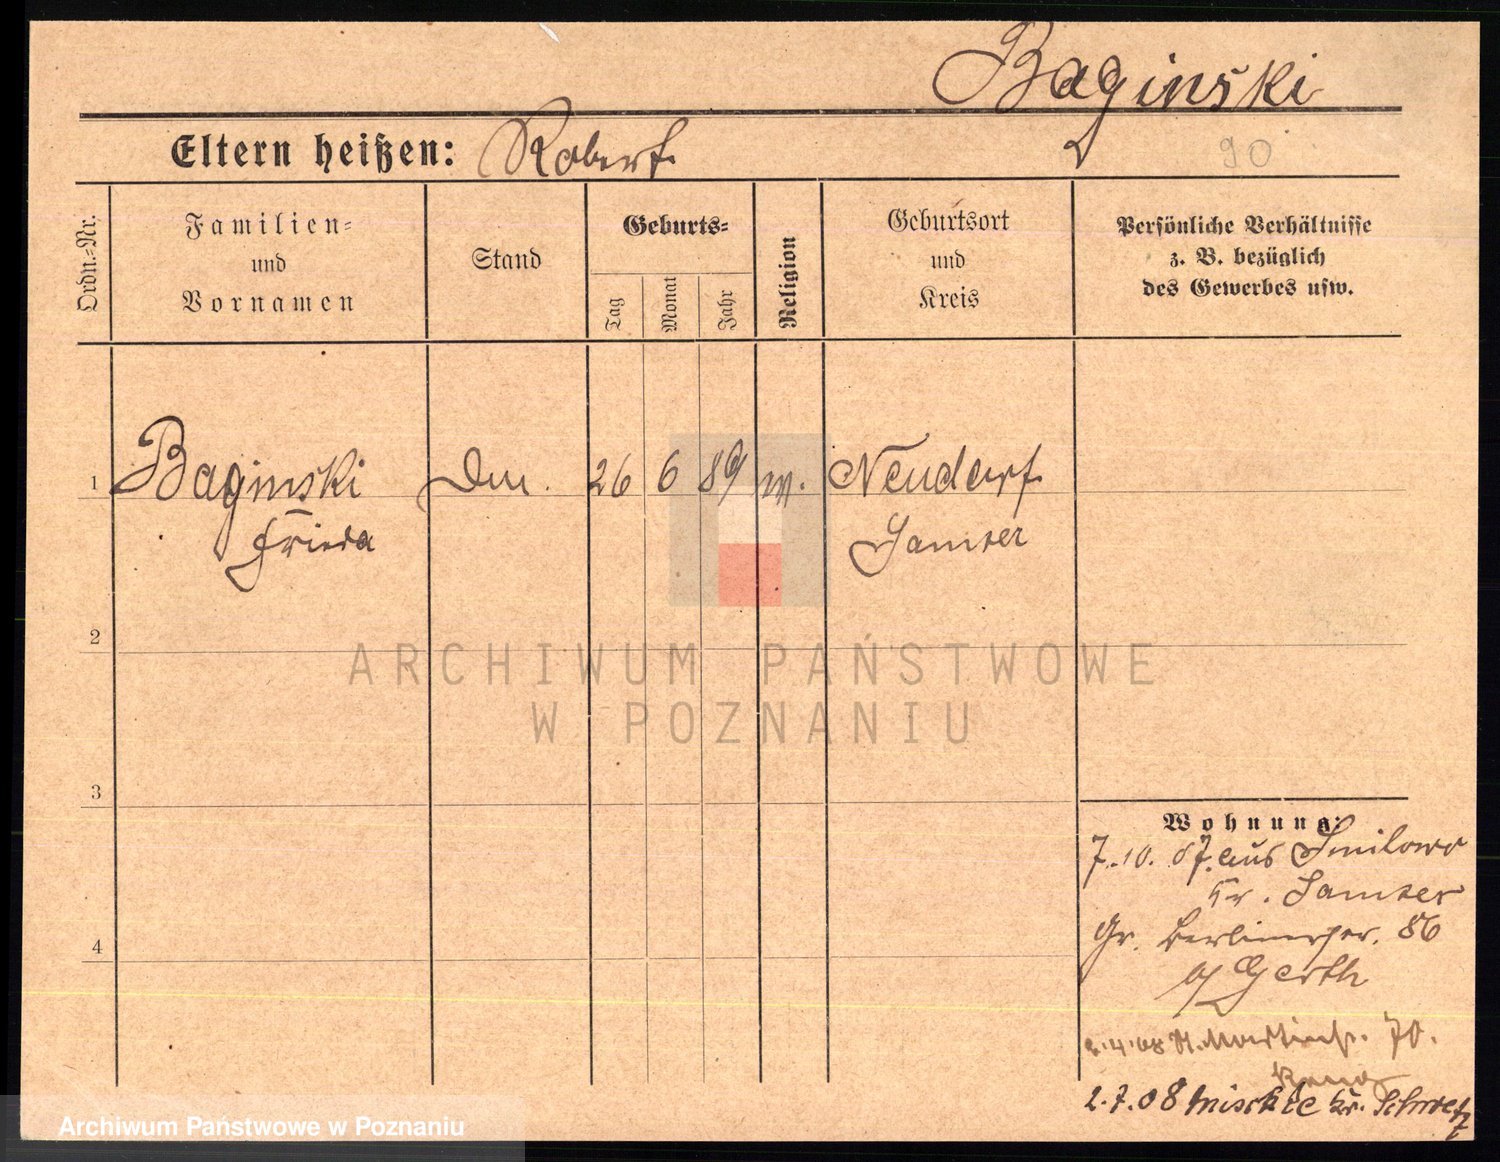 Baginski
Eltern heißen: Robert
90
Ordn.-Nr.
Familien-
und
Vornamen
Stand
Geburts-
Tag
Monat
Jahr
Religion
Geburtsort
und
Kreis
Persönliche Verhältnisse
z. B. bezüglich
des Gewerbes usw.
1 Baginski 26 6 89 Neudorf
Frieda Samter
2
ARCHIWUM PAŃSTWOWE
W POZNANIU
3
Wohnung:
7.10.07. aus Smilowo
Kr. Samter
Gr. Berlinerstr. 86
4
b/ Gerth
4.08 St. Martinstr. 70.
2.7.08 Kr. Schwetz
Archiwum Państwowe w Poznaniu